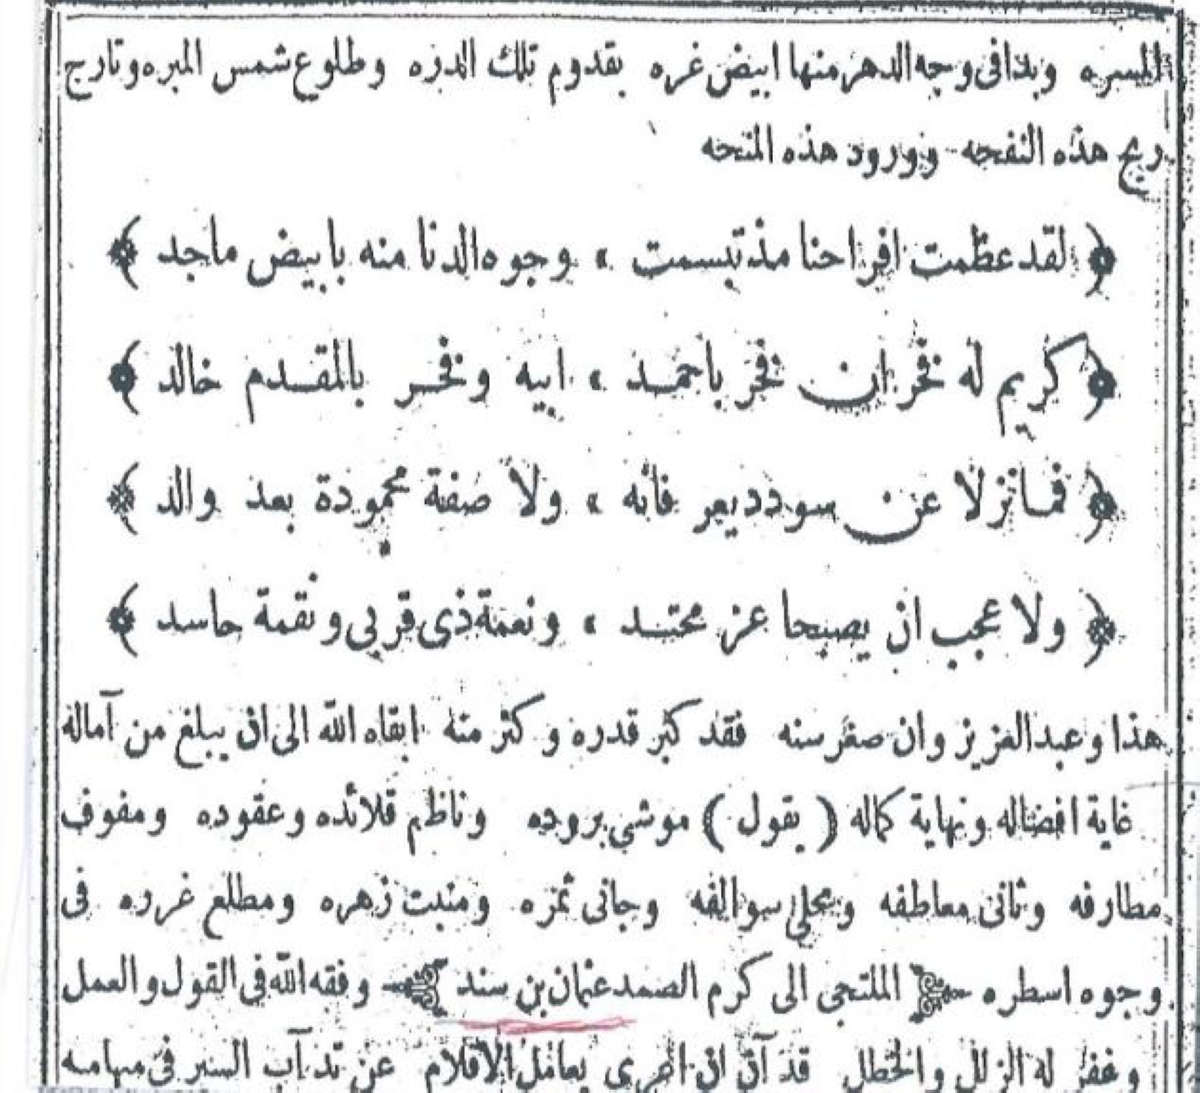 المسره وبدا فى وجه الدهر منها ابيض غره بقدوم تلك الدره وطلوع شمس المبره وتارج
ريح هذه النفحه وورود هذه المنحه
﴿ لقد عظمت افراحنا مذ تبسمت ، وجوه الدنا منه بابيض ماجد ﴾
﴿ كريم له فخران فخر باحمد ، ابيه وفخر بالمقدم خالد ﴾
﴿ فما نزلا عن سودد يعرفانه ، ولا صفة محمودة بعد والد ﴾
﴿ ولا عجب ان يصبحا عز محتد ، ونعمة ذى قربى ونقمة حاسد ﴾
هذا وعبد العزيز وان صغر سنه فقد كبر قدره وكثر منه ابقاه الله الى ان يبلغ من آماله
غاية افضاله ونهاية كماله ( يقول ) موشى بروده وناظم قلائده وعقوده ومفوف
مطارفه وثانى معاطفه ومحلى سوالفه وجانى ثمره ومنبت زهره ومطلع غرره فى
وجوه اسطره الملتجى الى كرم الصمد عثمان بن سند وفقه الله فى القول والعمل
وغفر له الزلل والخطل قد آن ان اعرى يعامل الاقلام عن تدآب السير فى مهامه